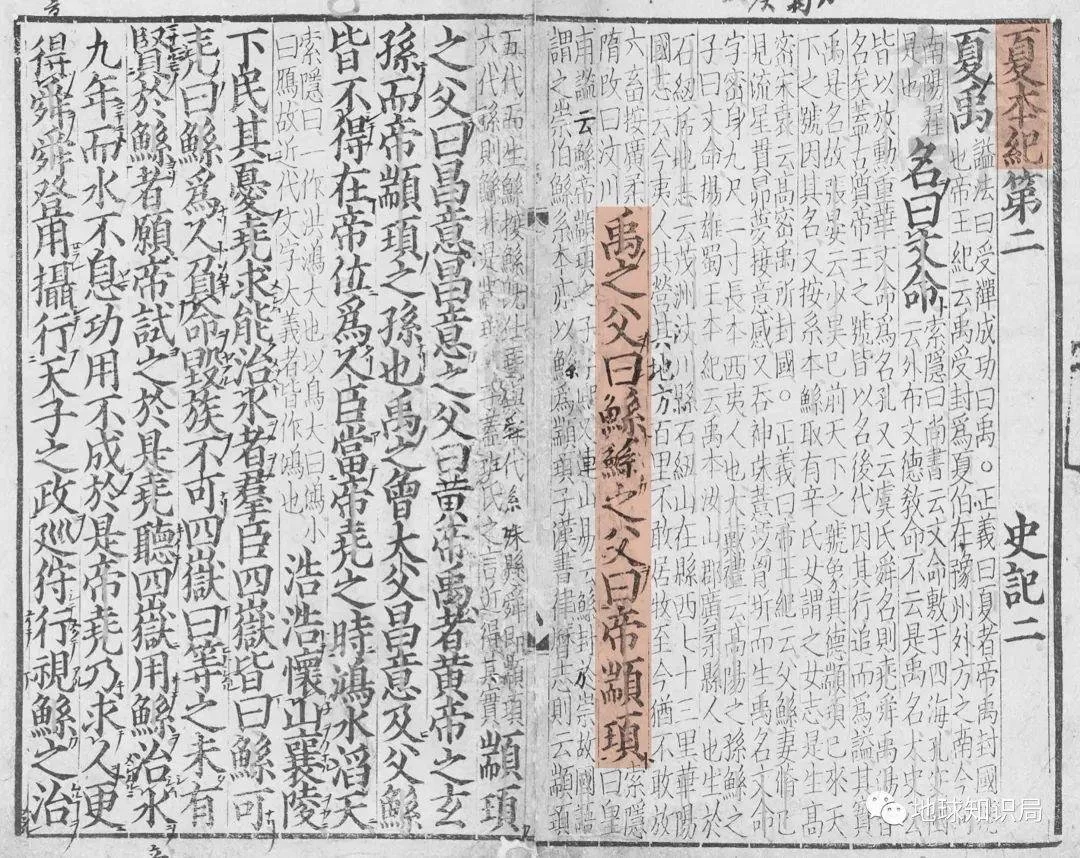 夏本紀第二 史記二
夏禹
謚法曰受禪成功曰禹。正義曰夏者帝禹封國號
也帝王紀云禹受封爲夏伯在豫州外方之南今
南陽翟是也
名曰文命
索隱曰尚書云文命敷于四海孔安國
云外布文德教命不云是禹名太史公
皆以放勳重華文命爲名孔又云虞氏舜名則堯舜禹湯皆
名矣蓋古者帝王之號皆以名後代因其行追而爲謚其實
禹是名故張晏云少昊已前天下之號象其德顓頊已來天
下之號因其名又按系本鯀取有辛氏女謂之女志是生高
密宋衷云高密禹所封國。正義曰帝王紀云父鯀妻脩己
見流星貫昴夢接意感又吞神珠薏苡胷坼而生禹名文命
字密身九尺二寸長本西夷人也大戴禮云高陽之孫鯀之
子曰文命揚雄蜀王本紀云禹本汶山郡廣柔縣人也生於
石紐括地志云茂洲汶川縣石紐山在縣西七十三里華陽
國志云今夷人共營其地方百里不敢居牧至今猶不敢放
六畜按廣柔
隋改曰汶川
禹之父曰鯀鯀之父曰帝顓頊
索隱
曰皇
甫謐云鯀帝顓頊之子字熙又連山易云鯀封於崇故國語
謂之崇伯鯀系本亦以鯀爲顓頊子漢書律曆志則云顓頊
五代而生鯀按鯀既仕堯與舜代系殊縣舜即顓頊
六代孫則鯀非是顓頊之子蓋班氏之言近得其實
顓頊
之父曰昌意昌意之父曰黃帝禹者黃帝之玄
孫而帝顓頊之孫也禹之曾大父昌意及父鯀
皆不得在帝位爲人臣當帝堯之時鴻水滔天
索隱曰一作洪鴻大也以鳥大曰鴻小
曰鴈故近代文字大義者皆作鴻也
浩浩懷山襄陵
下民其憂堯求能治水者羣臣四嶽皆曰鯀可
堯曰鯀爲人負命毀族不可四嶽曰等之未有
賢於鯀者願帝試之於是堯聽四嶽用鯀治水
九年而水不息功用不成於是帝堯乃求人更
得舜舜登用攝行天子之政巡狩行視鯀之治
地球知识局